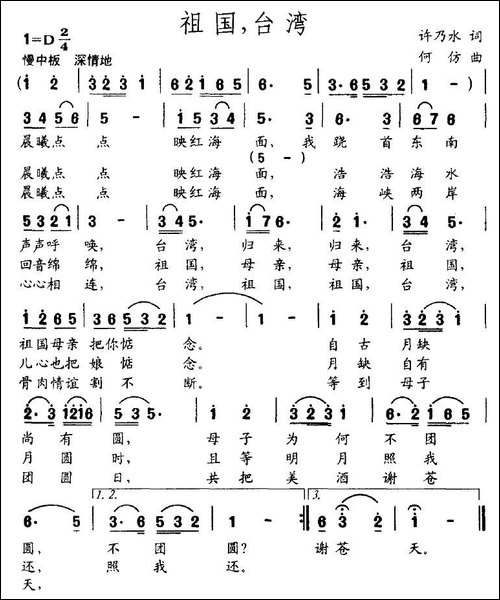 祖国,台湾
1=D 2/4
许乃水 词
慢中板 深情地
何仿 曲
(1 2 | 3 2 3 1 | 6 2 1 6 5 | 6· 5 | 3·6 5 3 2 | 1 -) |
3 4 5 6 | 5 - | 1 5 3 4 | 5 - | 6· 3 | 1 6 3 |
晨曦点点 映红海面,我跷首东南
(5 -)
晨曦点点 映红海面, 浩浩海水
晨曦点点 映红海面, 海峡两岸
5 3 2 1 | 3 - | 3 4 5· | 1 7 6· | 2 1· | 3 4 5· |
声声呼唤, 台湾, 归来, 归来, 台湾,
回音绵绵, 祖国, 母亲, 母亲, 祖国,
心心相连, 台湾, 祖国, 祖国, 台湾,
1 2 6 5 | 3 6 5 3 2 | 1 - | 1 - | 1 2 | 3 2 3 1 |
祖国母亲把你惦念。 自古月缺
儿心也把娘惦念。 月缺自有
骨肉情谊割不断。 等到母子
2·3 1 2 1 6 | 5 3 5· | 1 2 | 3 2 3 1 | 6·2 1 6 5 |
尚有圆, 母子为何不团
月圆时, 且等明月照我
团圆日, 共把美酒谢苍
1. 2.
3.
6· 5 | 3·6 5 3 2 | 1 - :| 6 3 2 | 1 - |
圆, 不团圆? 谢苍天。
还, 照我还。
天,